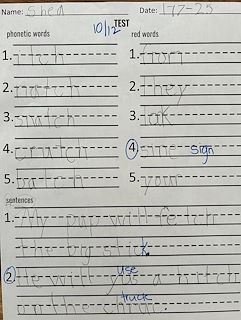 Name: Shea Date: 1-77-25
10/12 TEST
phonetic words red words
1. itch 1. from
2. match 2. they
3. snitch 3. look
4. crutch 4. sine sign
5. batch 5. your
sentences
1. My pup will fetch
the big stick.
2. He will yus use a hitch
on the truck.